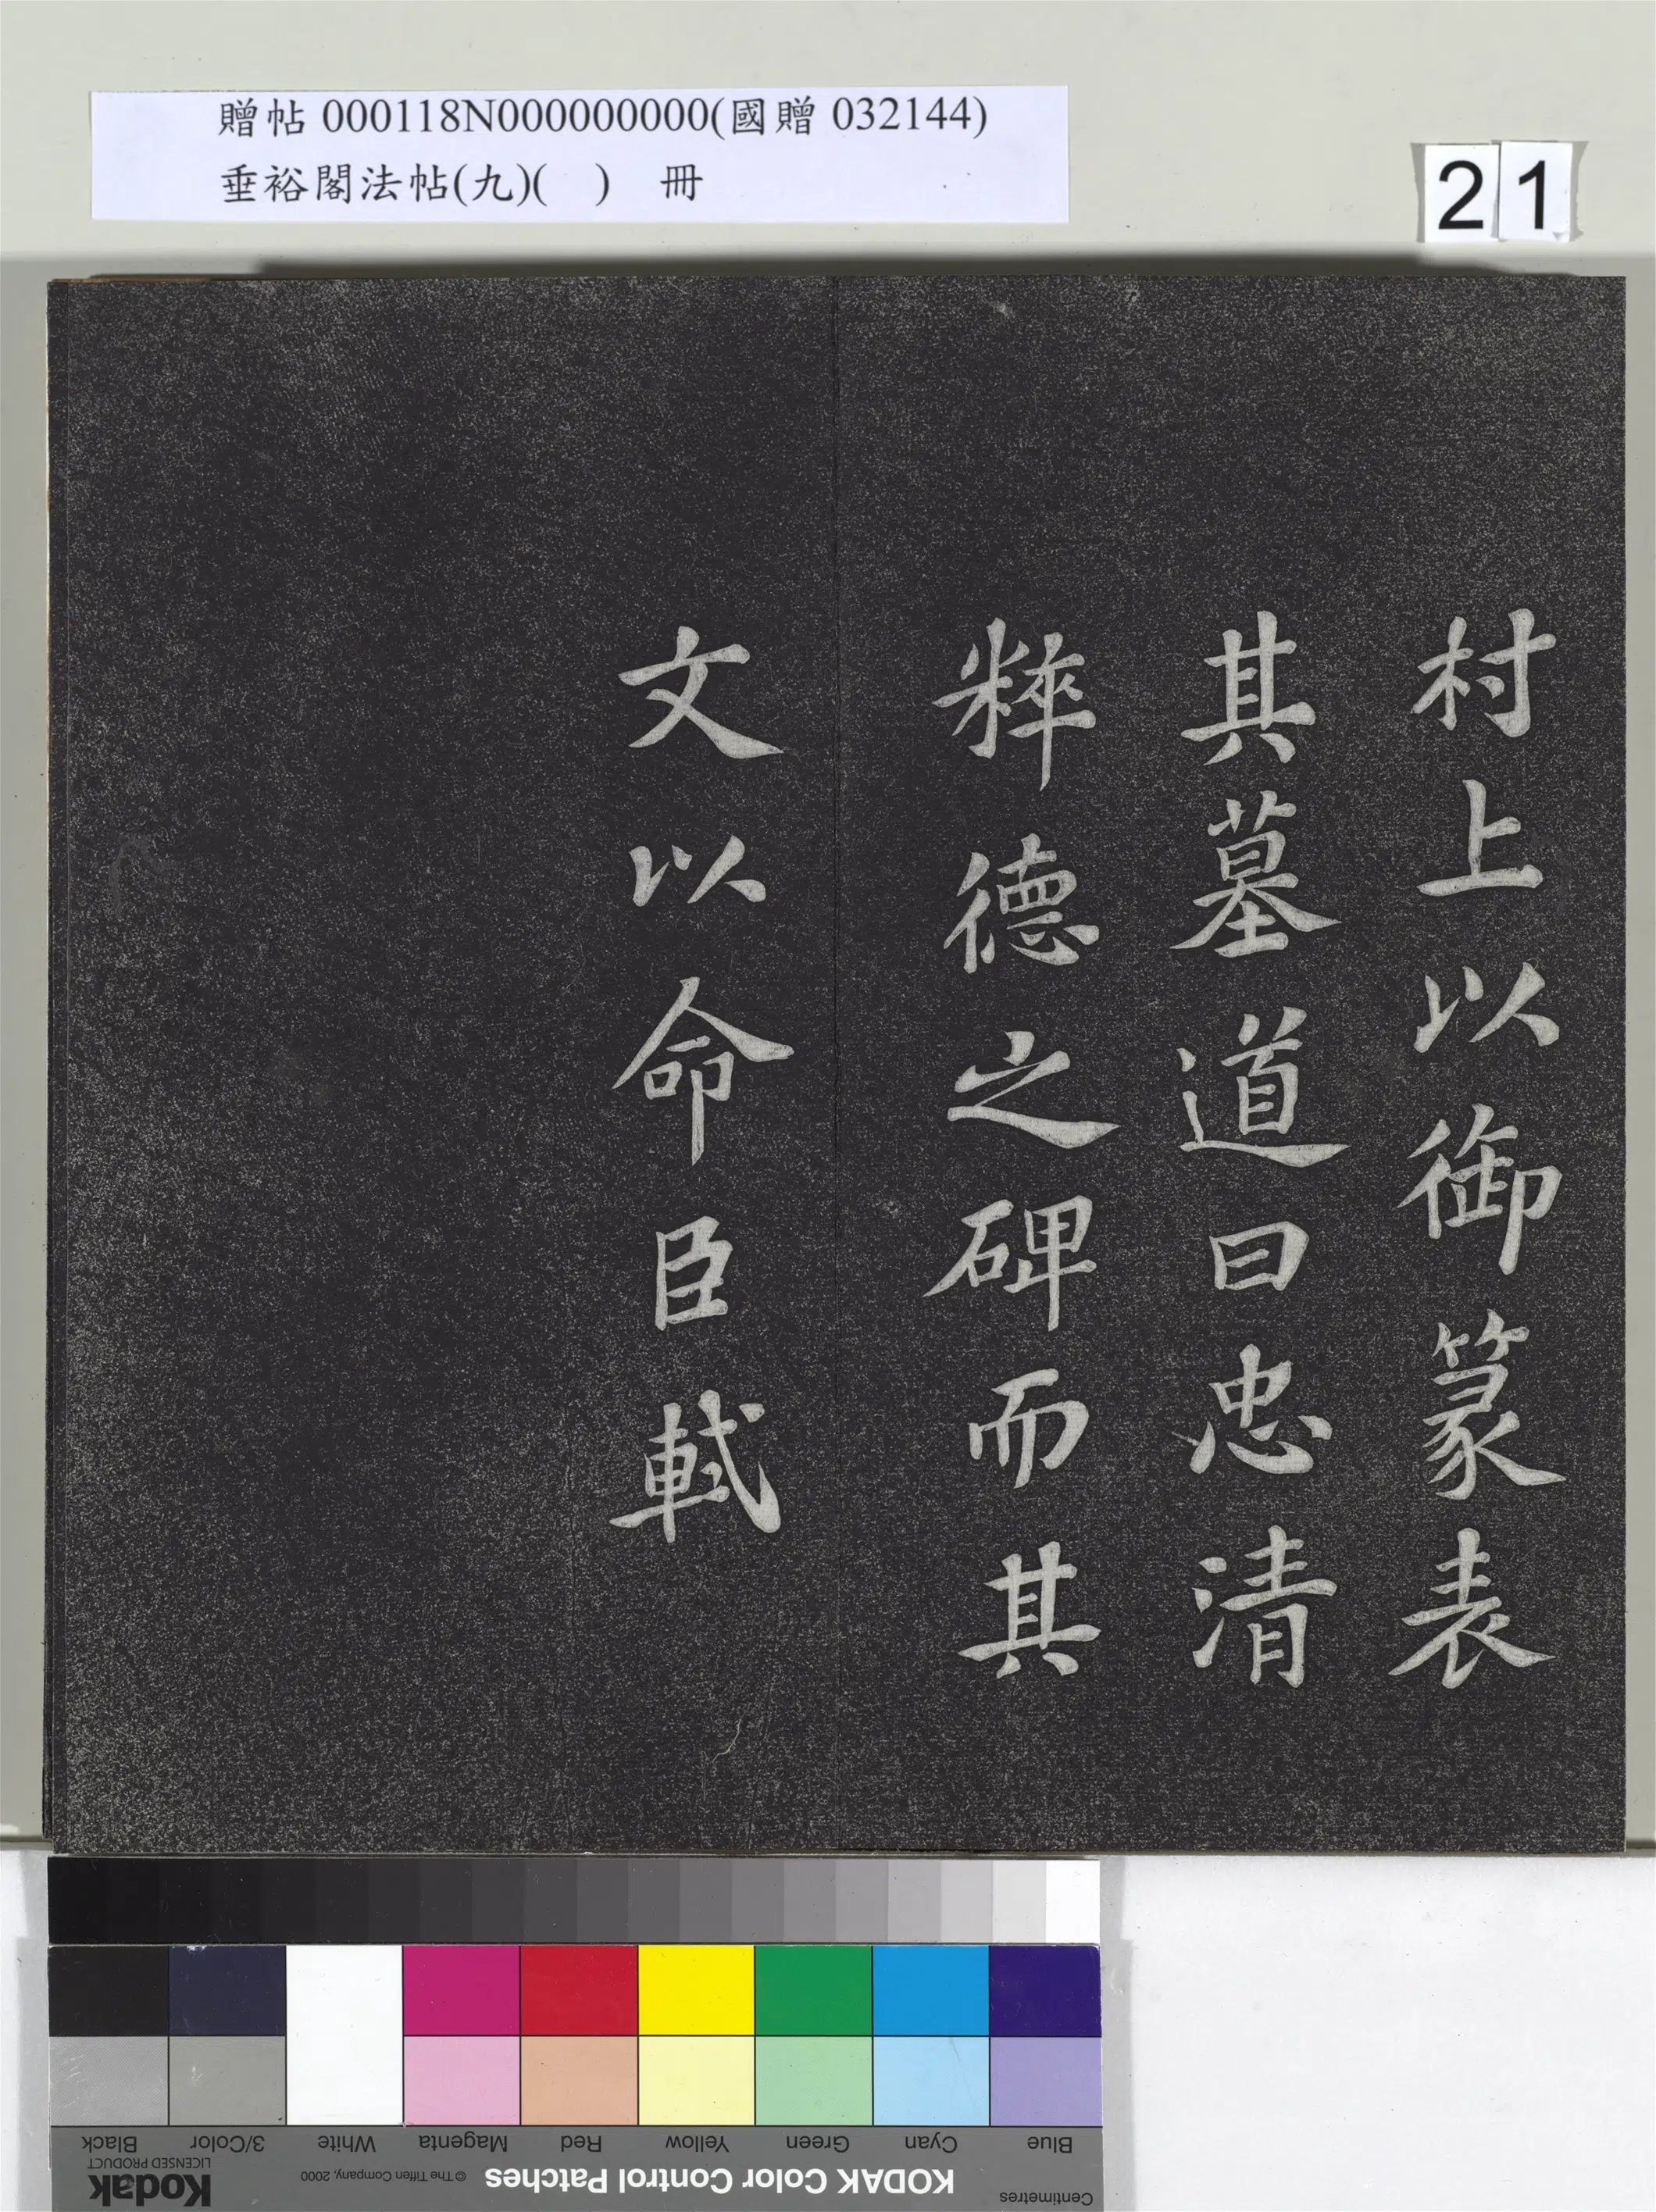 贈帖 000118N000000000(國贈 032144)
垂裕閣法帖(九)(　)　冊
21
村上以御篆表
其墓道曰忠清
粹德之碑而其
文以命臣軾
Black
3/Color
White
Magenta
Red
Yellow
Green
Cyan
Blue
Kodak
LICENSED PRODUCT
© The Tiffen Company, 2000
KODAK Color Control Patches
Centimetres